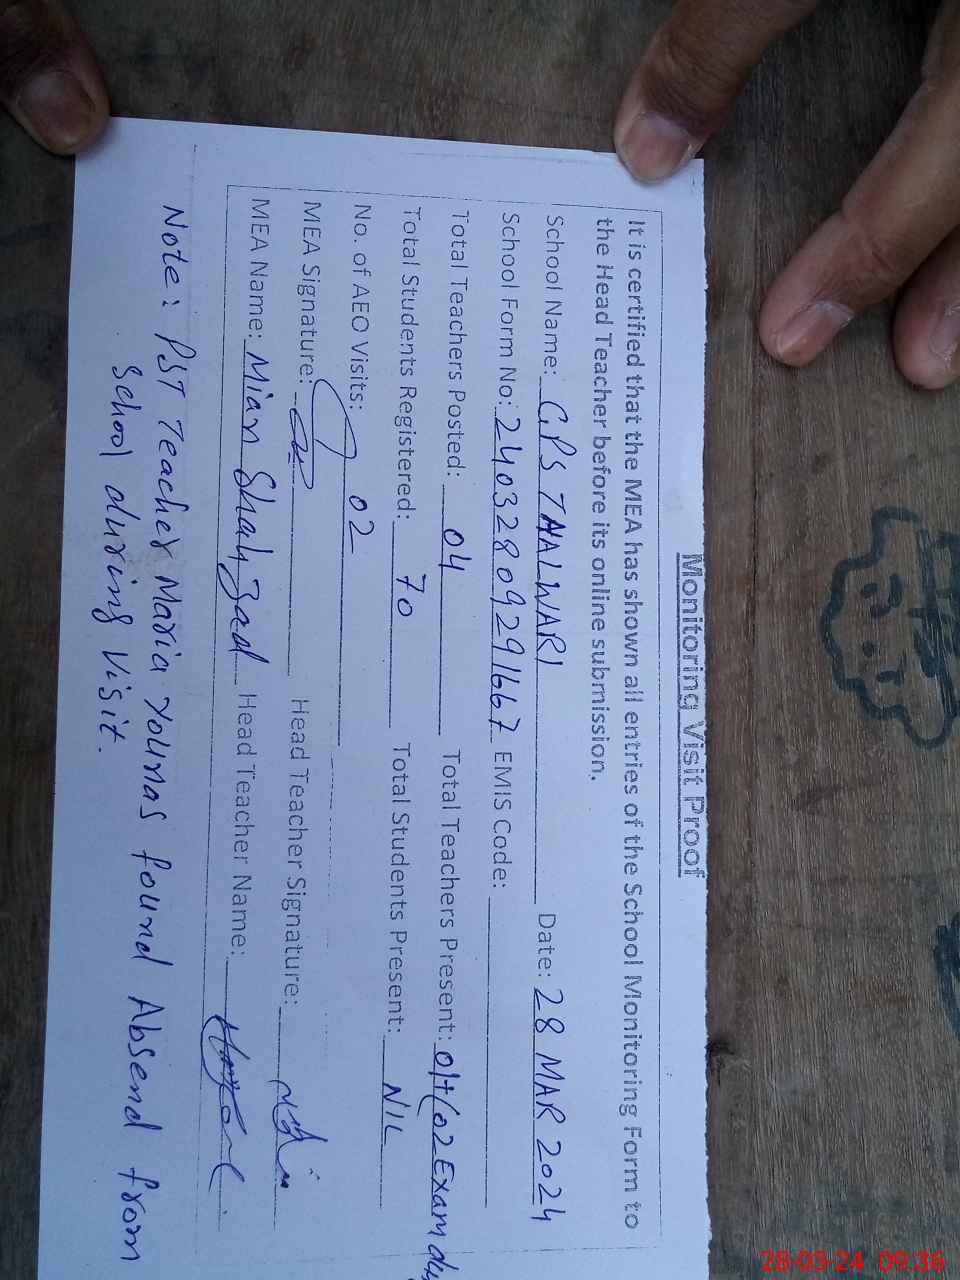 Monitoring Visit Proof
It is certified that the MEA has shown all entries of the School Monitoring Form to
the Head Teacher before its online submission.
School Name: GPS TALWARI Date: 28 MAR 2024
School Form No: 24032809291667 EMIS Code:
Total Teachers Posted: 04 Total Teachers Present: 01+(02 Exam duty
Total Students Registered: 70 Total Students Present: NIL
No. of AEO Visits: 02
MEA Signature: Head Teacher Signature:
MEA Name: Mian Shahzad Head Teacher Name:
Note: PST Teacher Maria Younas found Absend from
School during visit.
28-03-24 09:36